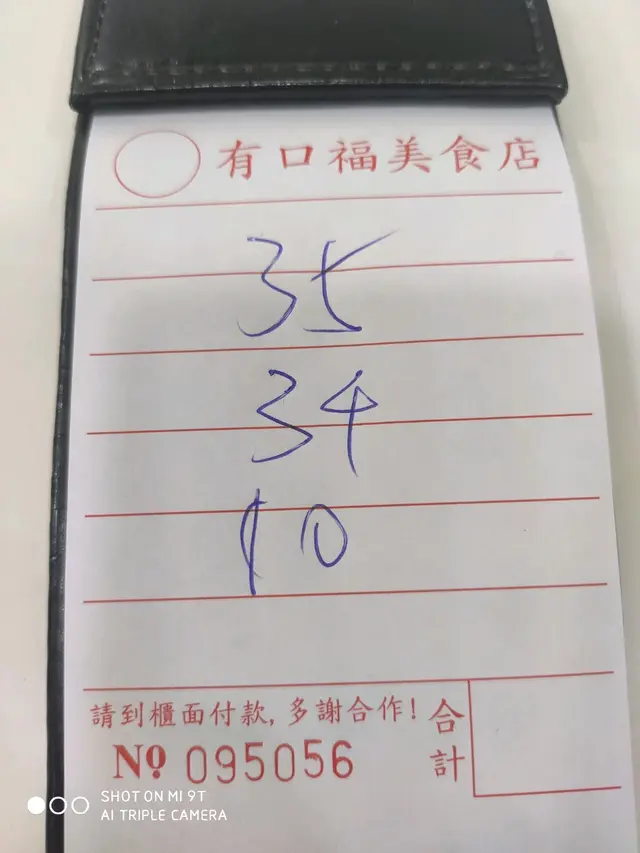 有口福美食店
35
34
10
請到櫃面付款,多謝合作!
合計
Nº 095056
SHOT ON MI 9T
AI TRIPLE CAMERA